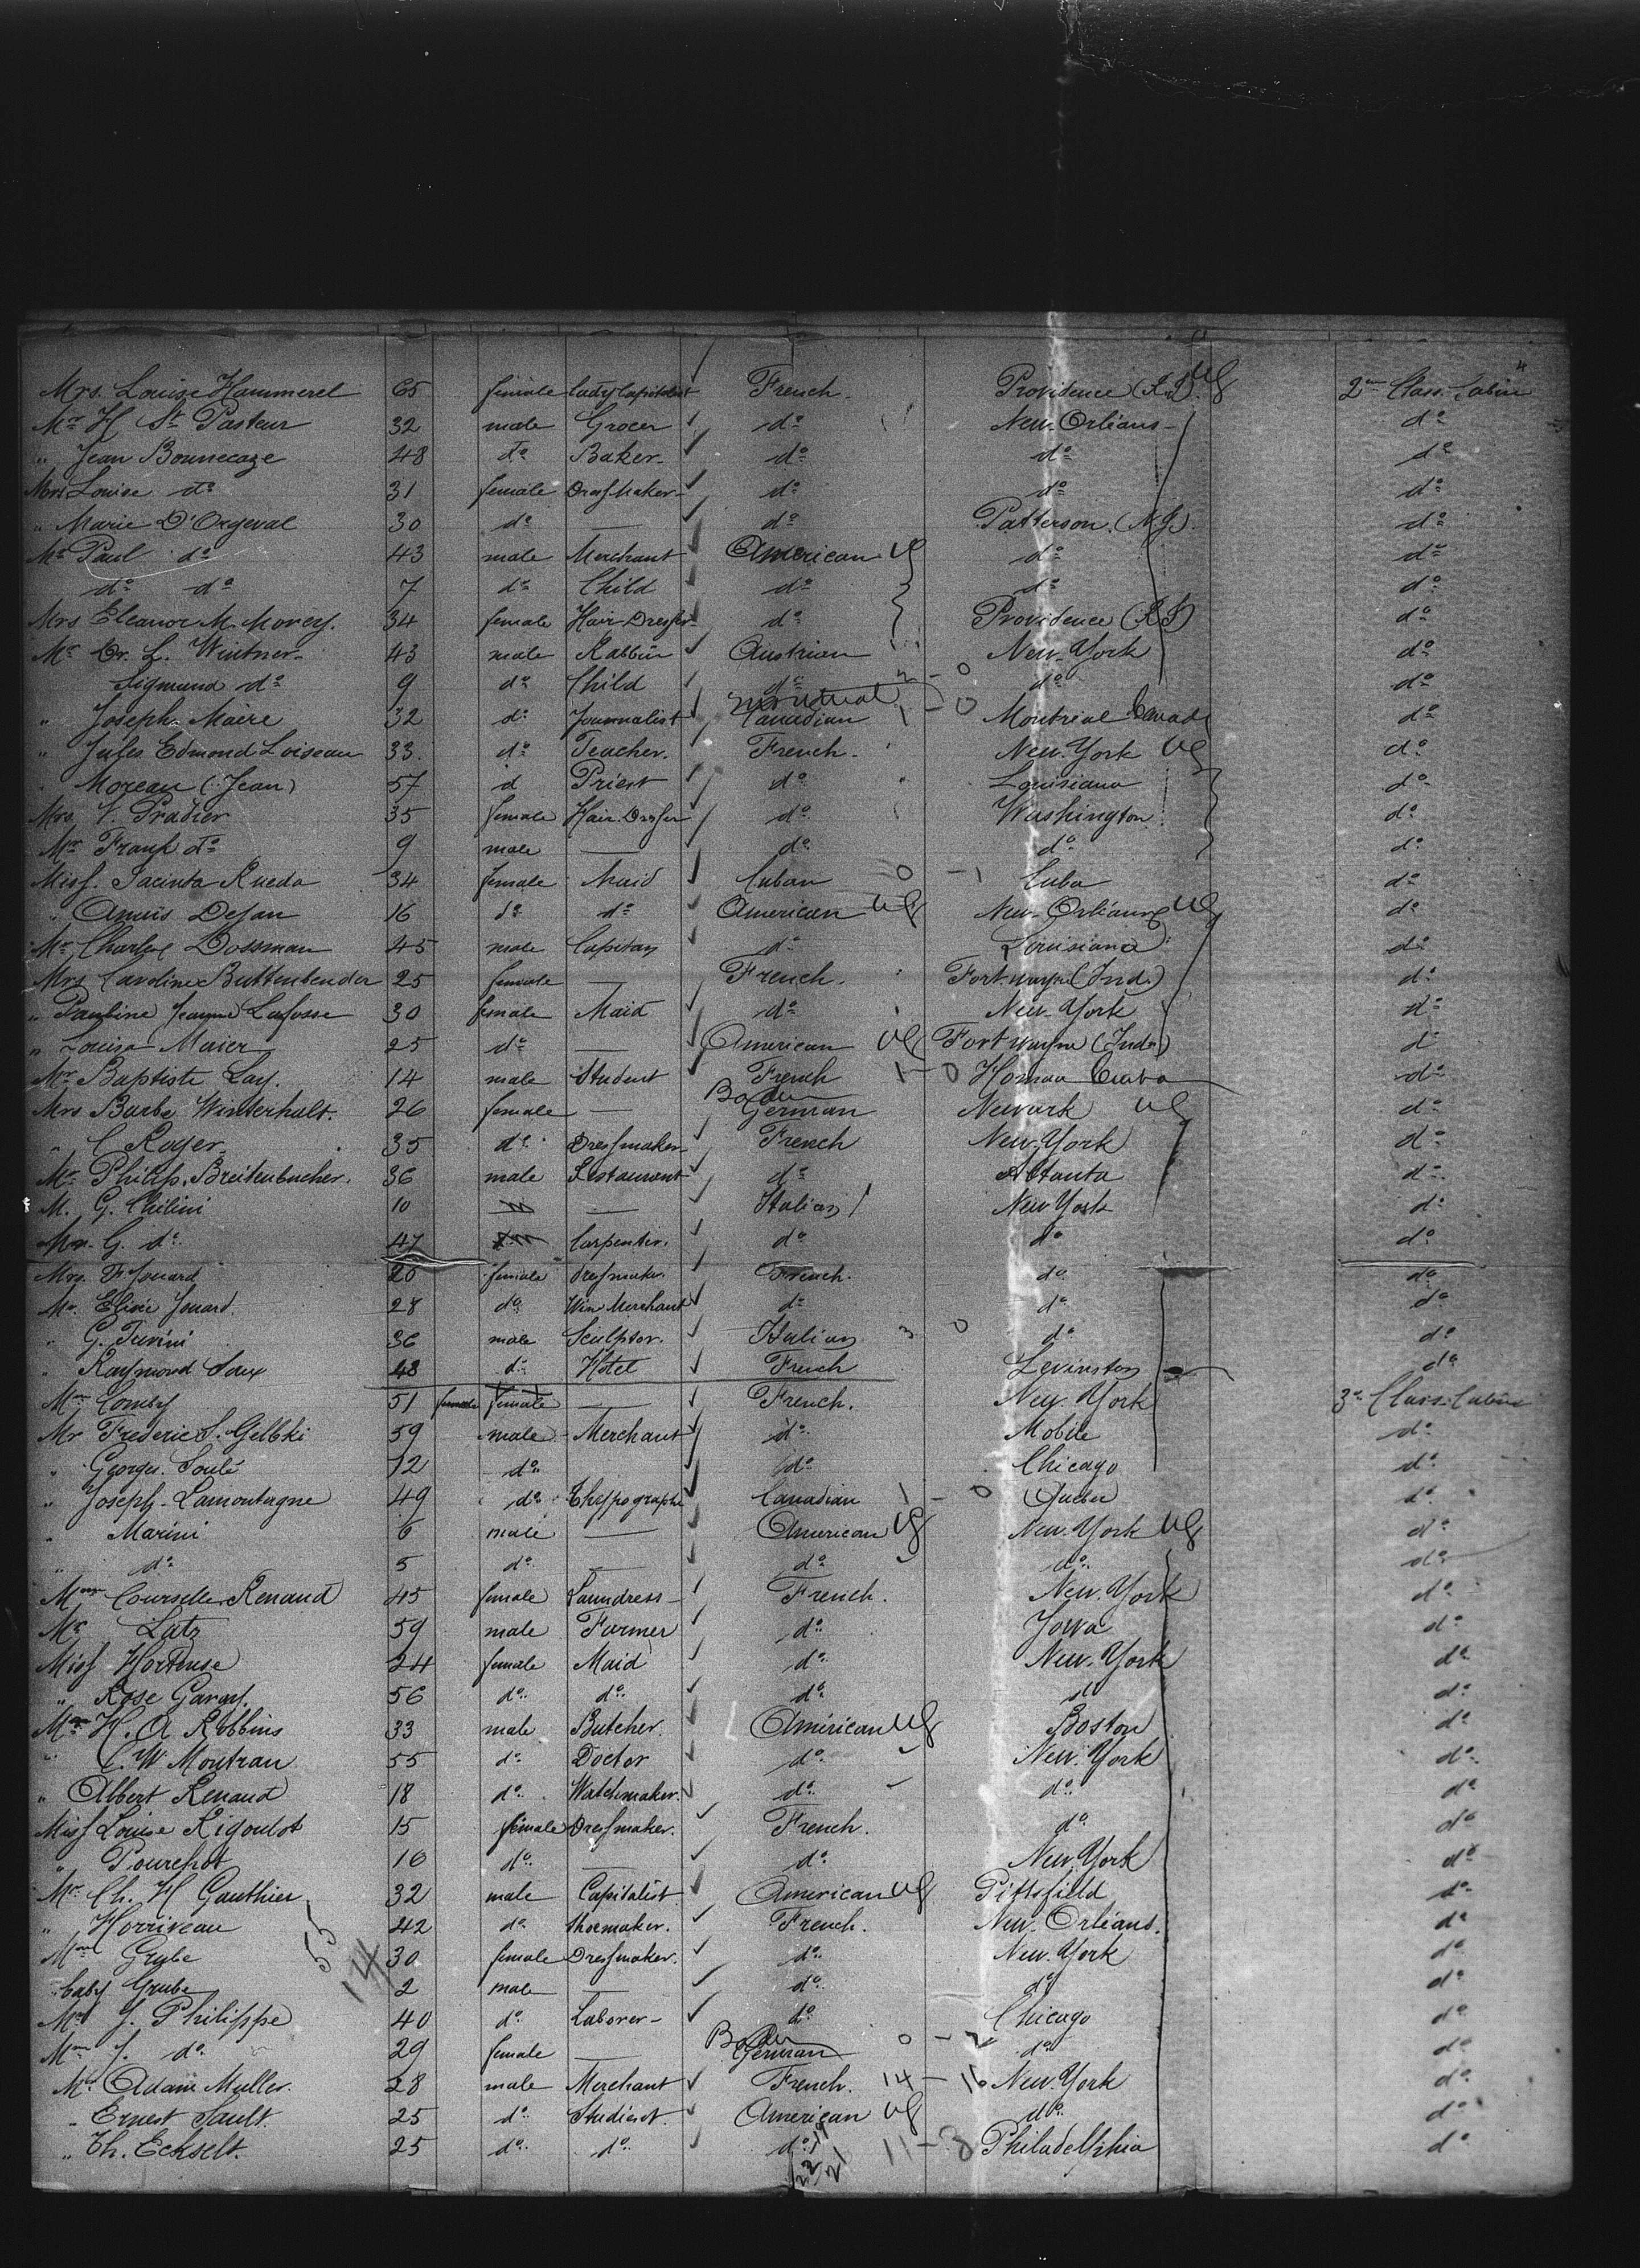 4
Mrs. Louise Hammerel 65 female Lady Capitalist French. Providence (R.I.) US 2me Class. Cabin
Mr H St Pasteur 32 male Grocer do New-Orléans do
" Jean Bonnecaze 48 do Baker do do do
Mrs Louise do 31 female DressMaker do do do
" Marie D'Orgeval 30 do — do Patterson. (N.J.) do
Mr Paul do 43 male Merchant American US do do
do do 7 do Child do do do
Mrs Eleanor M. Morey. 34 female Hair-Dresser do Providence (R.I) do
Mr Dr. L. Wintner 43 male Rabbin Austrian New-York do
Sigmund do 9 do Child do 2 - 0 do do
" Joseph Maire 32 do Journalist Canadian 1 - 0 Montréal Canada do
" Jules Edmond Loiseau 33. do Teacher. French. New-York US do
" Moreau (Jean) 57 d Priest do Louisiana do
Mrs V. Pradier 35 female Hair. Dresser do Washington do
Mr Frank do 9 male — do do do
Miss. Jacinta Rueda 34 female Maid Cuban 0 - 1 Cuba do
" Anaïs Dejan 16 do do American US New-Orléans US do
Mr Charles Dossman 45 male do Louisiana do
Mrs Caroline Buttenbender 25 female — French. Fort-wayne (Ind.) do
" Pauline Jeanne Lafosse 30 female Maid do New-York do
" Louisa Maier 25 do — American US Fort wayne (Inda) do
Mr Baptiste Lay. 14 male Student French 1 - 0 Cuba do
Mrs Barbe Winterhalt. 26 female — Baden German Newark US do
" C Royer 35 do Dressmaker French New-York do
Mr Philip. Breitenbucher. 36 male Restaurant do Atlanta do
M. G. Chilini 10 m — Italian New York do
Mr. G. do 47 Carpenter. do do do
Mrs. F Jouard 20 female dressmaker. French. do do
Mr. Elisée Jouard. 28 do Win Merchant do do do
" G. Turini 36 male Sculptor. Italian 3 0 do do
" Raymond Saux 48 do Hotel French Levinston do
Mme Comby 51 female female — French. New. York 3e Class. Cabin
Mr. Frederic S. Gelbki 59 male Merchant do Mobile do
" Georges. Soulé 12 do — do Chicago do
" Joseph-Lamontagne 49 do Thypographe Canadian 1 - 0 Quebec do
" Marini 6 male — American US New. York US do
" do 5 do — do do do
Mme Courselle Renaud 45 female Laundress French. New. York do
Mr Latz 59 male Farmer do Jowa do
Miss Hortense 24 female Maid do New. York do
" Rose Garay. 56 do do do do do
Mr H. A Robbins 33 male Butcher. American US Boston do
" C. W. Moutran 55 do Doctor do New. York do
" Albert Renaud 18 do Watchmaker. do do do
Miss Louise Rigoulot 15 female Dressmaker. French. do do
" Pourchot 16 do — do New York do
Mr Ch. H Gauthier 32 male Capitalist American US Pittsfield do
" Horriveau 42 do Shoemaker. French. New. Orléans. do
Mme Grube 30 female Dressmaker. do New. York do
55
14
" baby Grube 2 male — do do do
Mr J. Philippe 40 do Laborer do Chicago do
Mme J. do 29 female — Baden German 0 - 2 do do
Mr. Adam Muller. 28 male Merchant French. 14 - 16 New. York do
" Ernest Sault. 25 do Student. American US do do
" Th. Eckselt. 25 do do do 11 - 3 Philadelphia do